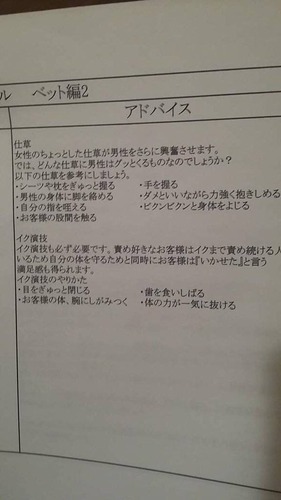 ル　ベット編2
アドバイス
仕草
女性のちょっとした仕草が男性をさらに興奮させます。
では、どんな仕草に男性はグッとくるものなのでしょうか？
以下の仕草を参考にしましょう。
・シーツや枕をぎゅっと握る　・手を握る
・男性の身体に脚を絡める　・ダメといいながら力強く抱きしめる
・自分の指を咥える　・ビクンビクンと身体をよじる
・お客様の股間を触る
イク演技
イク演技も必ず必要です。責め好きなお客様はイクまで責め続ける人
いるため自分の体を守るためと同時にお客様は『いかせた』と言う
満足感も得られます。
イク演技のやりかた
・目をぎゅっと閉じる　・歯を食いしばる
・お客様の体、腕にしがみつく　・体の力が一気に抜ける